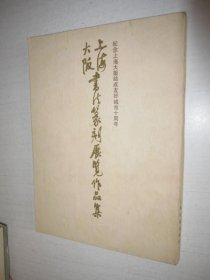 纪念上海大阪结成友好城市十周年
上海
大阪
书法篆刻展览作品集